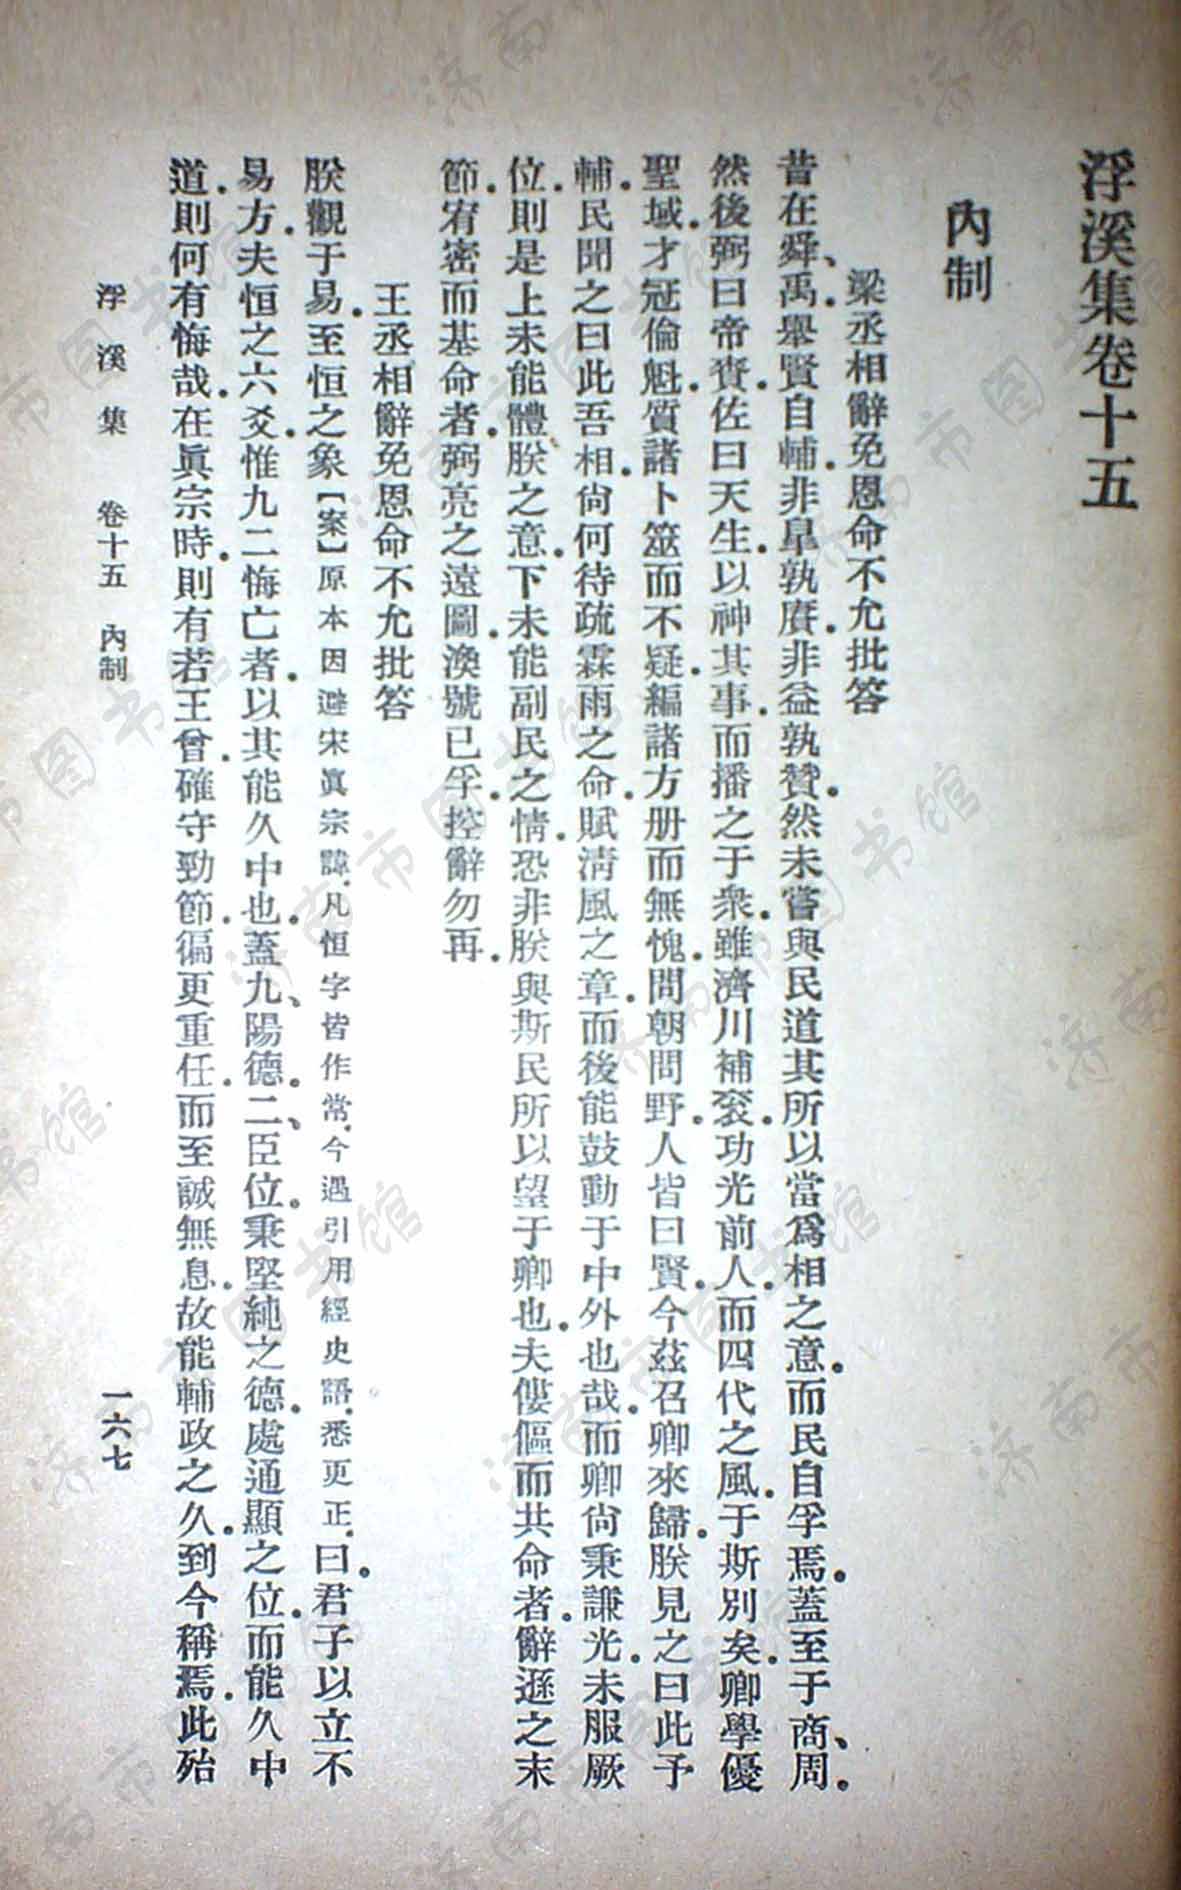 浮溪集卷十五
內制
梁丞相辭免恩命不允批答
昔在舜、禹。舉賢自輔。非臯孰賡。非益孰贊。然未嘗與民道其所以當爲相之意。而民自孚焉。蓋至于商、周。
然後弼曰帝賚。佐曰天生。以神其事。而播之于衆。雖濟川補袞。功光前人。而四代之風。于斯別矣。卿學優
聖域。才冠倫魁。質諸卜筮而不疑。編諸方册而無愧。問朝問野。人皆曰賢。今茲召卿來歸。朕見之曰此予
輔。民聞之曰此吾相。尙何待疏霖雨之命。賦淸風之章。而後能鼓動于中外也哉。而卿尙秉謙光。未服厥
位。則是上未能體朕之意。下未能副民之情。恐非朕與斯民所以望于卿也。夫僂傴而共命者。辭遜之末
節。宥密而基命者。弼亮之遠圖。渙號已孚。控辭勿再。
王丞相辭免恩命不允批答
朕觀于易。至恒之象【案】原本因避宋眞宗諱。凡恒字皆作常。今遇引用經史語。悉更正。曰。君子以立不
易方。夫恒之六爻。惟九二悔亡者。以其能久中也。蓋九、陽德。二、臣位。秉堅純之德。處通顯之位。而能久中
道。則何有悔哉。在眞宗時。則有若王曾。確守勁節。徧更重任。而至誠無息。故能輔政之久。到今稱焉。此殆
浮溪集 卷十五 內制
一六七
济南市图书馆